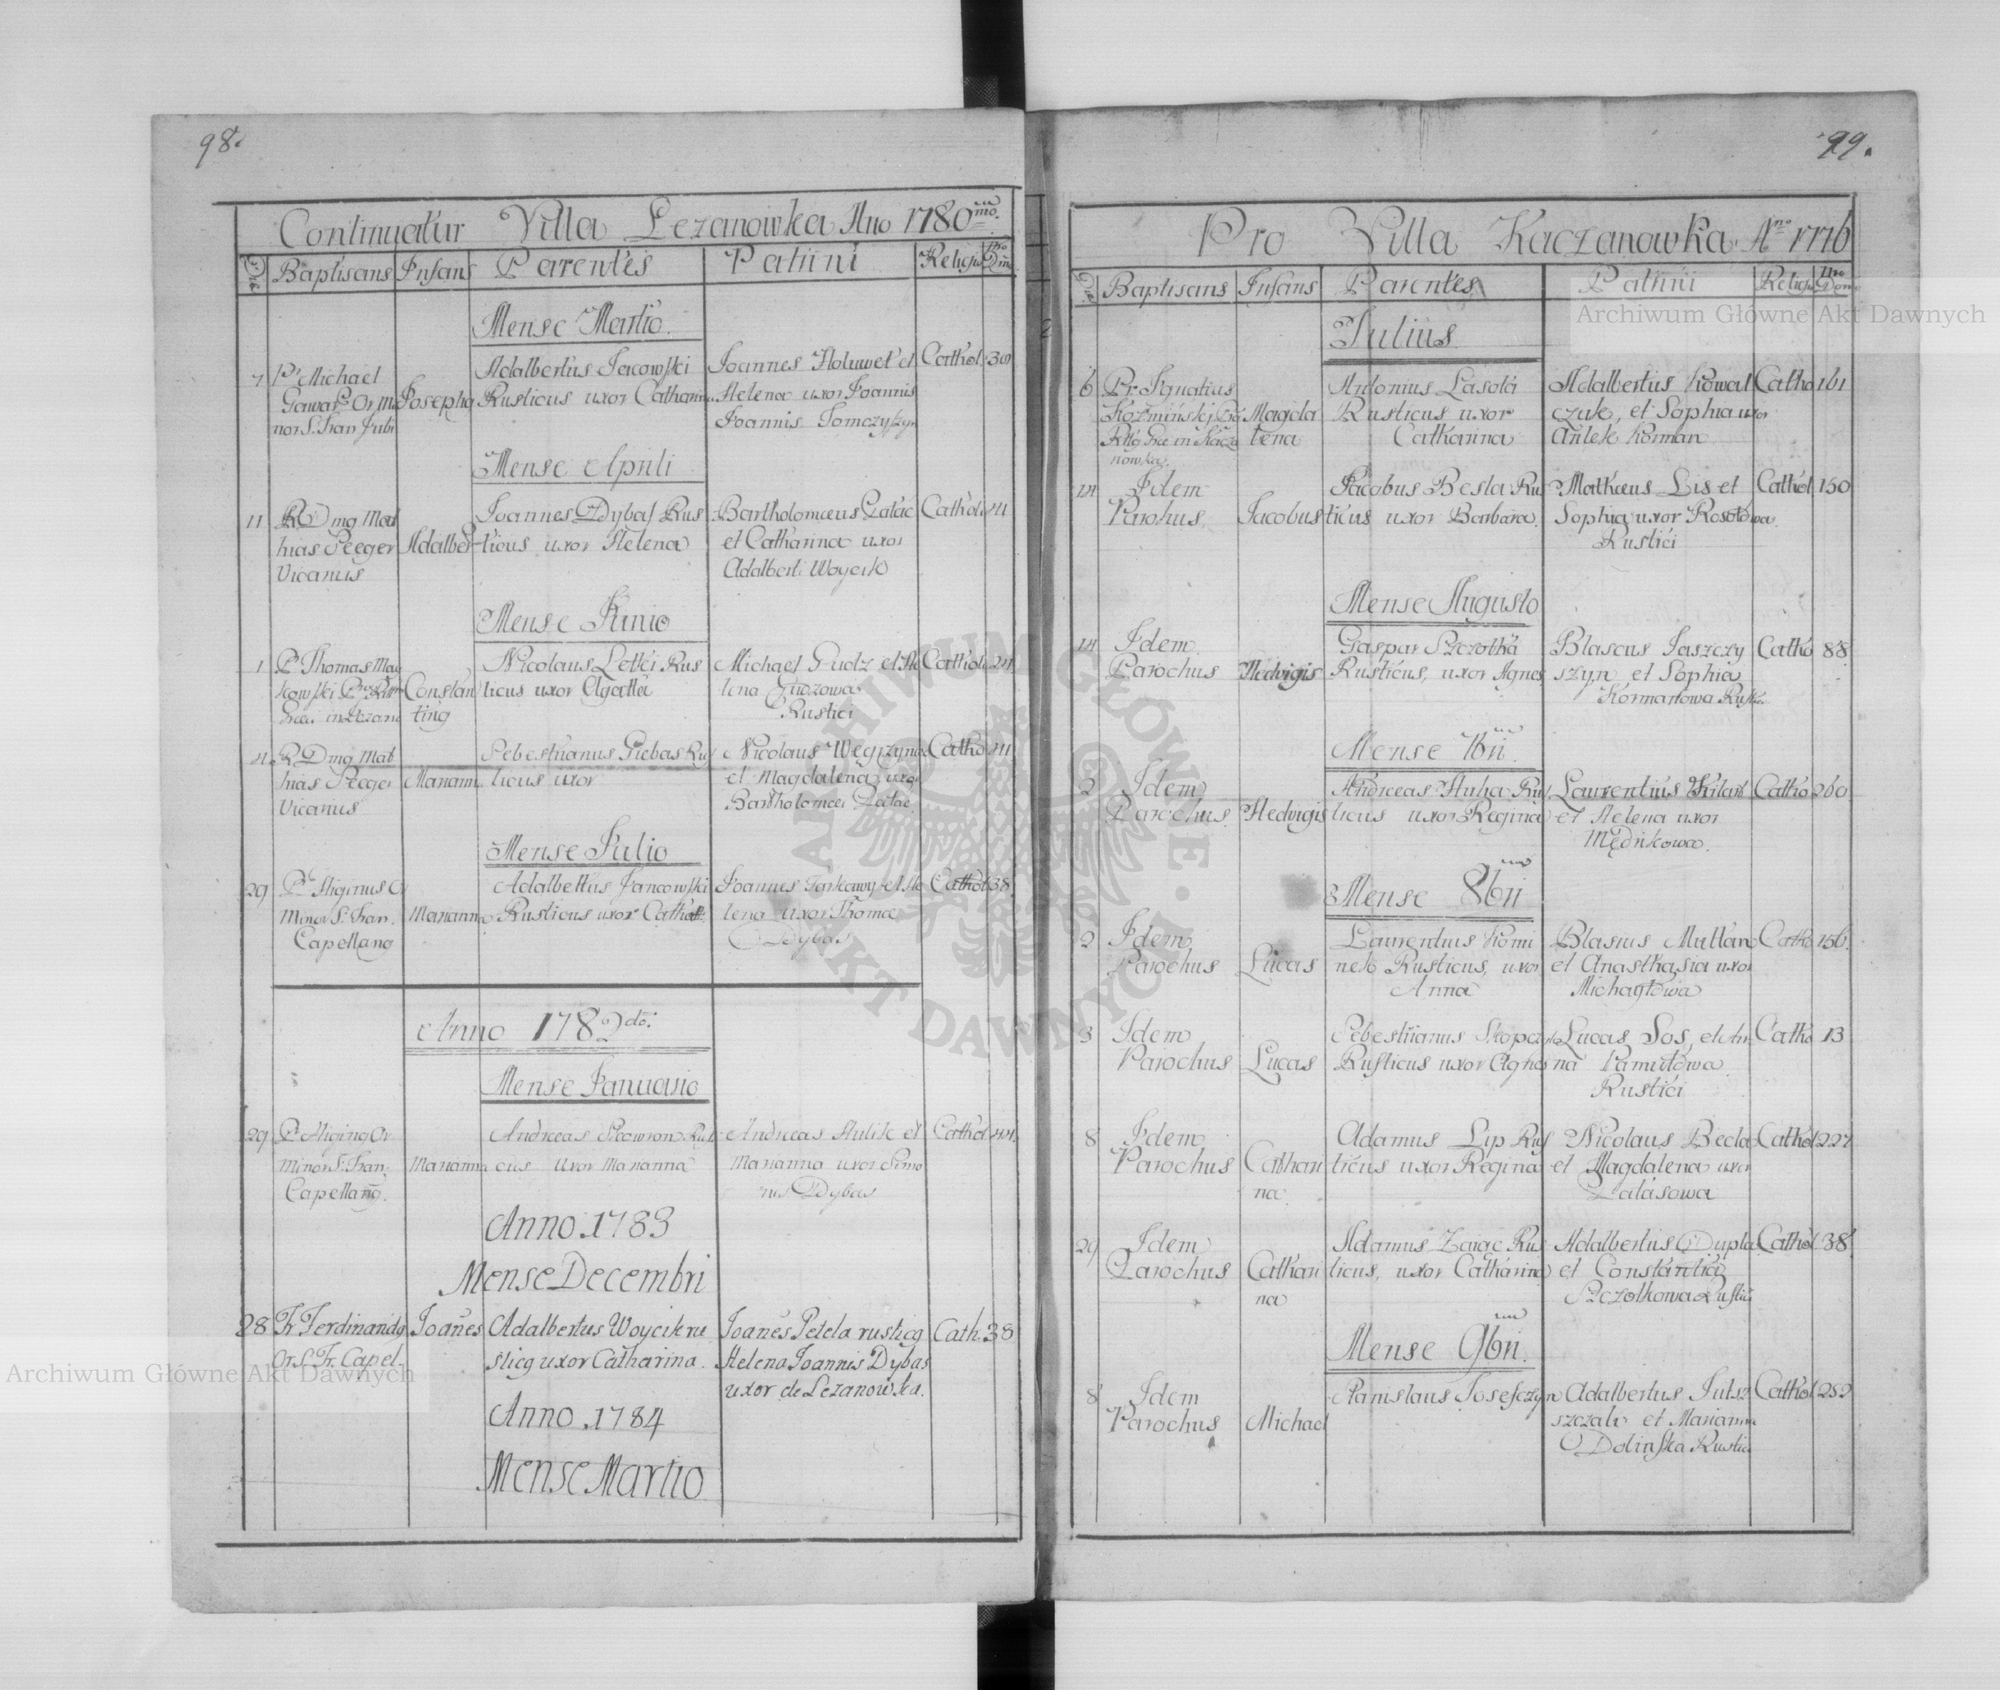 98.
Continuatur Villa Lezanowka Ano 1780mo
Die Baptisans Infans Parentes Patrini Religio Nro Dom
Mense Martio.
7 Pr Michael
Josepha
Adalbertus
Rusticus uxor Catharina
Joannes Holuwet et
Helena uxor Joannis
Joannis Tomczyszyn
Cathol. 30
Mense Aprili
11 RD Mat
hias Peeger
Vicarius
Adalber
Joannes Dybas Rus
ticus uxor Helena
Bartholomæus
et Catharina uxor
Adalberti Woycik
Cathol.
Mense Junio
1 P Thomas
Constan
tina
Nicolaus Letki Rus
ticus uxor Agatha
Michael Gudz et He
lena Gudzowa
Rustici
Cathol. 24
RD Mat
hias Peeger
Vicarius
Mariann
Sebestianus Rus
ticus uxor
Nicolaus Węgrzyn
et Magdalena uxor
Bartholomæi
Catho
Mense Julio
29 P Higinus Or
Minor S. Fran.
Capellang
Marianna
Adalbertus Jancowski
Rusticus uxor Cathar.
Joannes et He
lena uxor Thoma
Dybas
Cathol 38
Anno 1782do.
Mense Januario
29 P Higing Or
Minor S. Fran.
Capellang.
Marianna
Andreas Skowron Rusti
cus uxor Marianna
Andreas Hulik et
Marianna uxor Simo
nis Dybas
Cathol 44.
Anno. 1783
Mense Decembri
28 Fr Ferdinandg
Or. S. Fr. Capel.
Joanes
Adalbertus Woycik ru
sticg uxor Catharina.
Joanes Petela rusticg
Helena Joannis Dybas
uxor de Lezanowka.
Cath. 38
Anno. 1784
Mense Martio
99.
Pro Villa Kaczanowka Ano 1776
Die Baptisans Infans Parentes Patrini Religio Nro Dom
Julius
6 Pr. Ignatius
Kozminski
nowka.
Magda
lena
Antonius Lasota
Rusticus uxor
Catharina
Adalbertus Kowal
czuk, et Sophia uxor
Antek Korman
Catho 161
14 Idem
Parohus
Jacobus
Jacobus Besla Rus
ticus uxor Barbara.
Mathæus Lis et
Sophia uxor
Rustici
Cathol 150
Mense Augusto
14 Idem
Parochus
Hedvigis
Gaspar Szczotka
Rusticus, uxor Agnes
Blascus Jaszczy
szyn, et Sophia
Kormanowa Rusti.
Catho 88
Mense 7bri
2 Idem
Parochus
Hedvigis
Andreas Huha Rus
ticus uxor Regina
Laurentius
et Helena uxor
Mędrikowa.
Catho 260
Mense 8bri
2 Idem
Parochus
Lucas
Laurentius Komi
nek Rusticus, uxor
Anna
Blasius Mullan
et Anasthasia uxor
Michałowa
Catho 156.
3 Idem
Parochus
Lucas
Sebestianus Skopa
Rusticus uxor Agnes
Lucas Sos, et An
na Pamułowa
Rustici
Catho 13
8 Idem
Parochus
Cathari
na.
Adamus Lip Rus
ticus uxor Regina
Nicolaus Becla
et Magdalena uxor
Całasowa
Cathol 227
29 Idem
Parochus
Cathari
na
Adamus Zaiąc Rus
ticus, uxor Catharina
Adalbertus Dupla
et Constantia
Szczotkowa Rustici
Cathol 38
Mense 9bri.
8 Idem
Parochus
Michael
Stanislaus Josefczyn
Adalbertus
szczak et Marianna
Dolinska Rustici
Cathol 282
Archiwum Główne Akt Dawnych
Archiwum Główne Akt Dawnych
ARCHIWUM GŁÓWNE AKT DAWNYCH